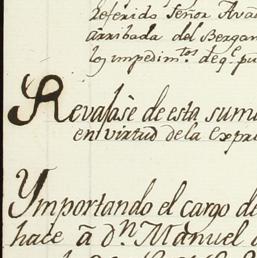 referido Señor Ava
arribada del Bergan
los impedim.tos de q.e pu
Revajase de esta suma
en virtud de la Expre
Ymportando el cargo de
hace â D.n Manuel